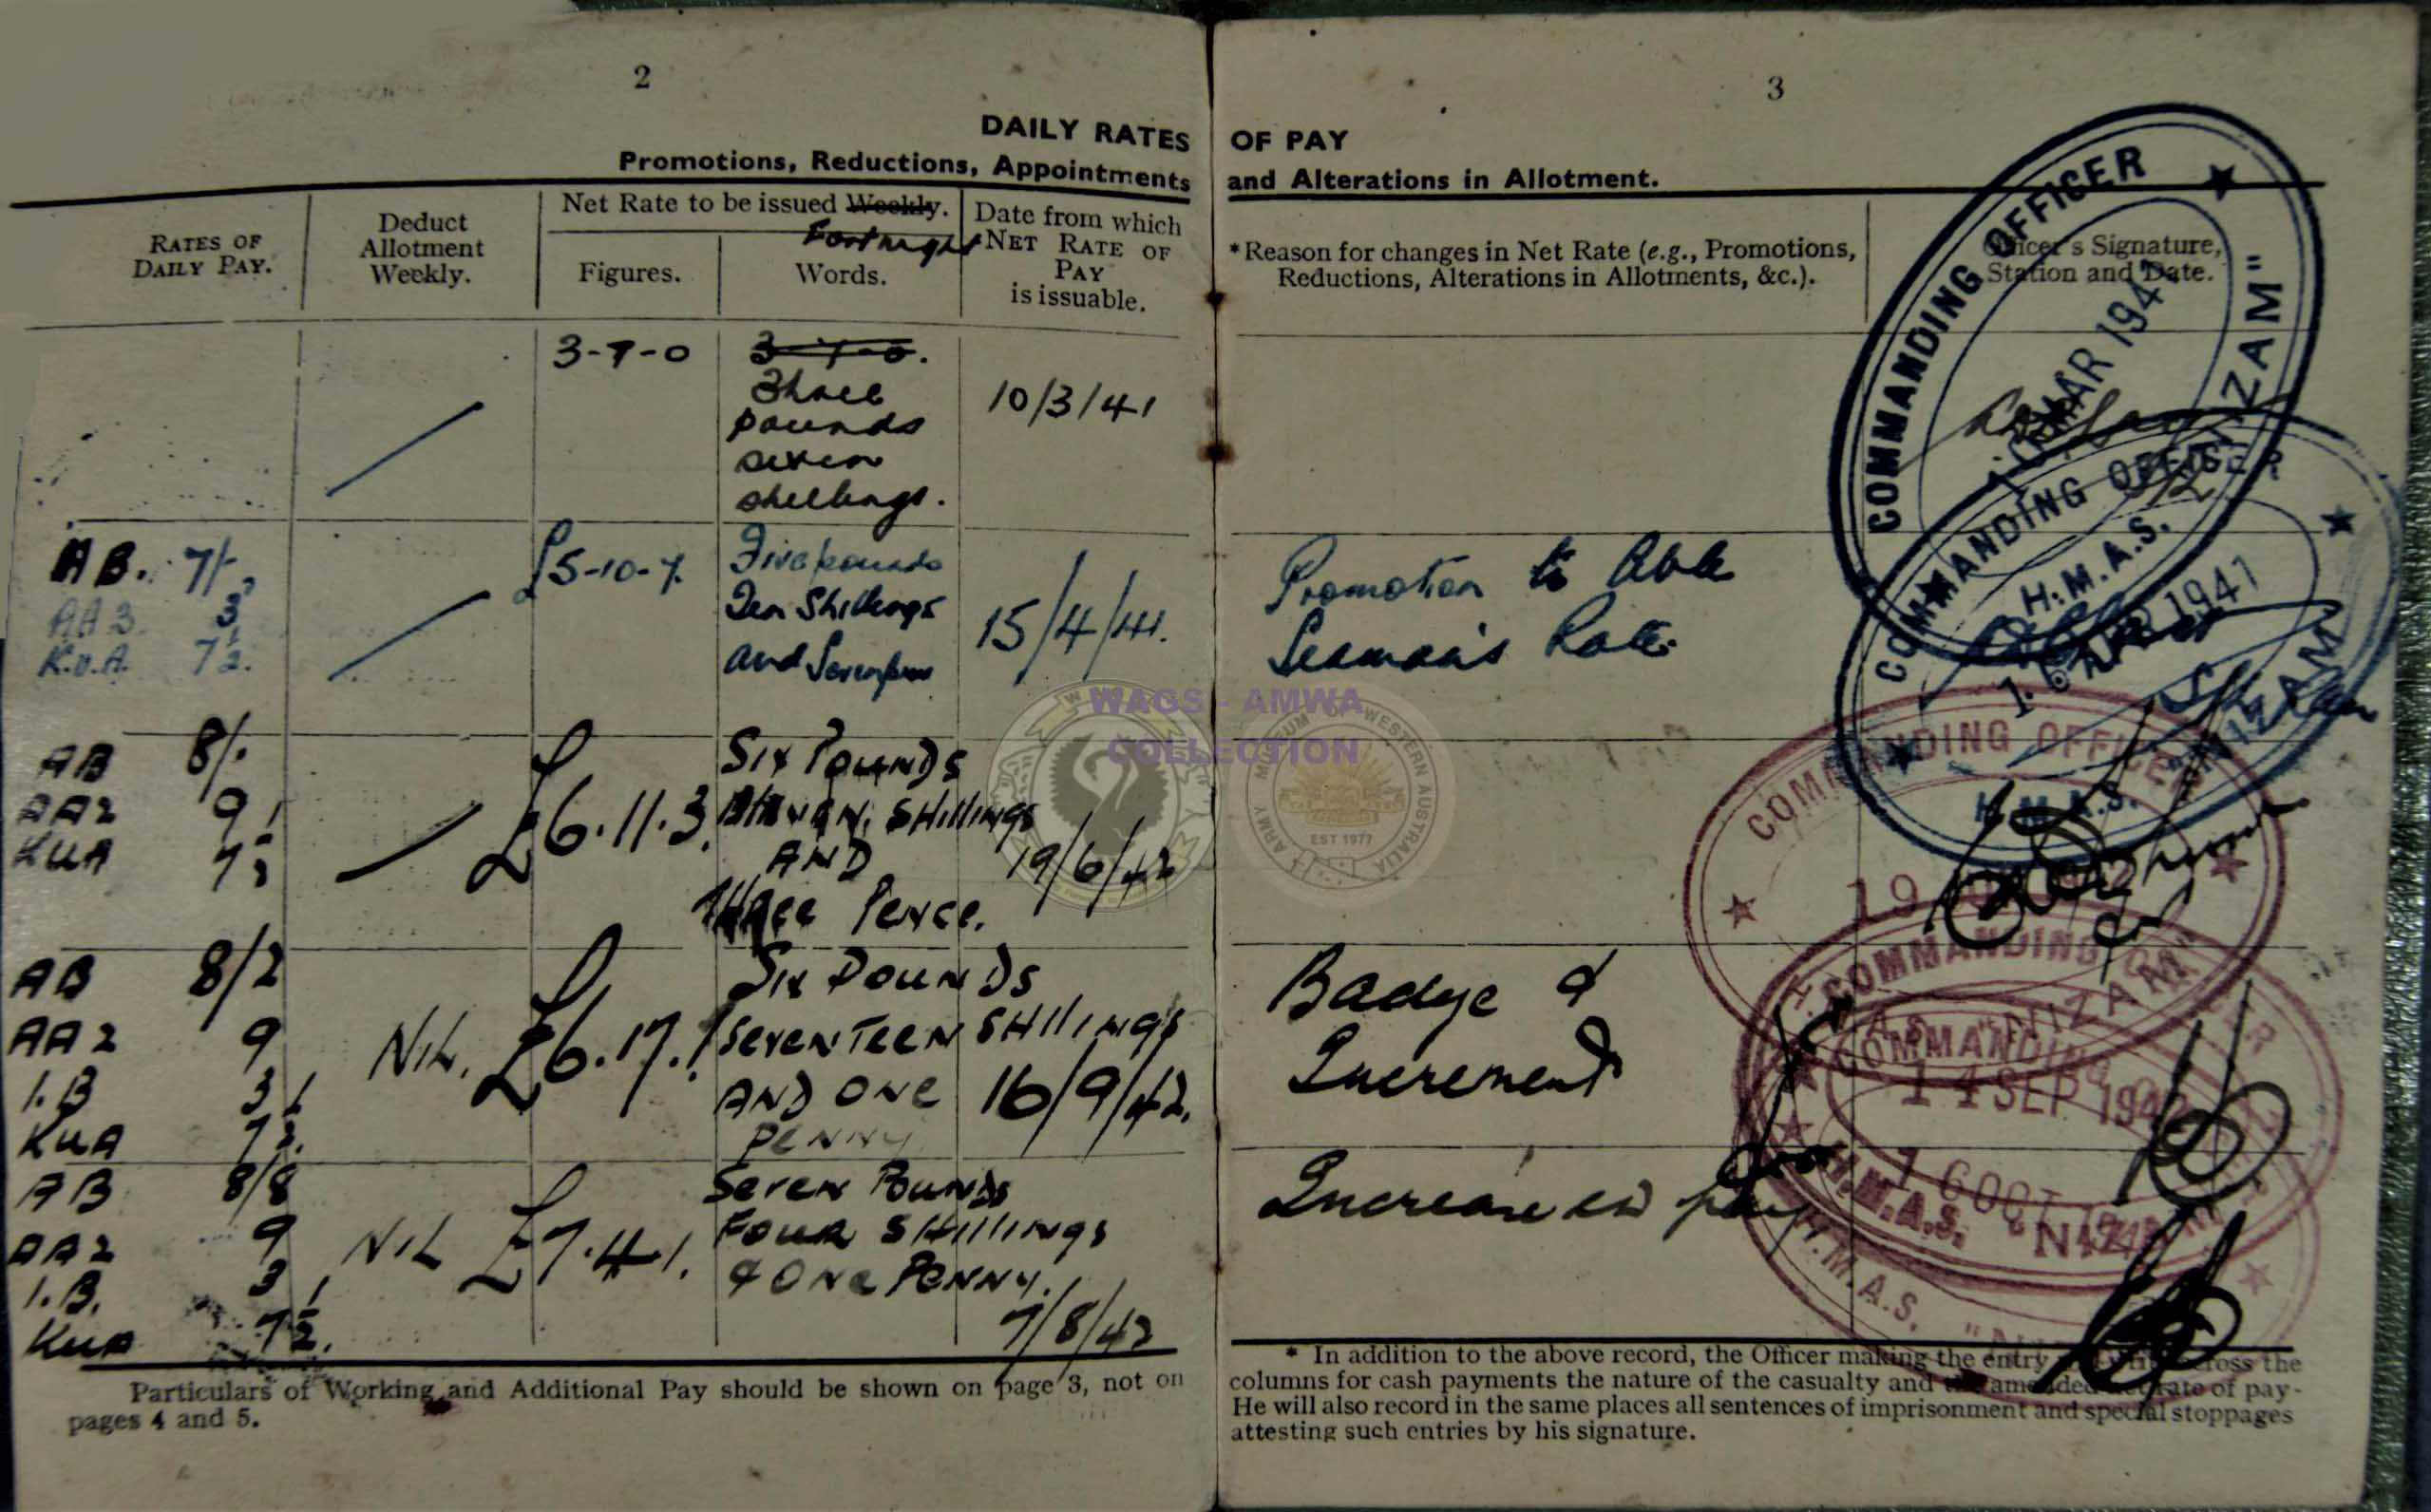 2
3
DAILY RATES OF PAY
Promotions, Reductions, Appointments and Alterations in Allotment.
RATES OF
DAILY PAY.
Deduct
Allotment
Weekly.
Net Rate to be issued Weekly.
Fortnight
Figures.
Words.
Date from which
NET RATE OF
PAY
is issuable.
*Reason for changes in Net Rate (e.g., Promotions,
Reductions, Alterations in Allotments, &c.).
Officer's Signature,
Station and Date.
3-7-0
3-7-0.
Three
pounds
seven
shillings.
10/3/41
AB. 7/-
AA3. 3
K.U.A. 7½.
£5-10-7.
Five pounds
Ten Shillings
and Sevenpence
15/4/41.
Promotion to Able
Seaman's Rate.
AB 8/-
AA2 9
KUA 7½
£6.11.3.
SIX POUNDS
ELEVEN. SHILLINGS
AND
THREE PENCE.
19/6/42
AB 8/2
AA2 9
1.B 3
KUA 7½.
NIL.
£6.17.1
SIX POUNDS
SEVENTEEN SHILLINGS
AND ONE
PENNY
16/9/42.
Badge &
Increment
AB 8/8
AA2 9
1.B. 3
KUA 7½.
NIL
£7.4.1.
SEVEN POUNDS
FOUR SHILLINGS
& ONE PENNY.
7/8/42
Increase in pay
COMMANDING OFFICER
MAR 1941
H.M.A.S. "NIZAM"
COMMANDING OFFICER
16 APR 1941
H.M.A.S. "NIZAM"
COMMANDING OFFICER
19
H.M.A.S. "NIZAM"
COMMANDING OFFICER
14 SEP 1942
H.M.A.S. "NIZAM"
COMMANDING OFFICER
16 OCT
H.M.A.S. "NIZAM"
WAGS - AMWA
COLLECTION
ARMY MUSEUM OF WESTERN AUSTRALIA
EST 1977
Particulars of Working and Additional Pay should be shown on page 3, not on
pages 4 and 5.
* In addition to the above record, the Officer making the entry will write across the
columns for cash payments the nature of the casualty and the amended net rate of pay-
He will also record in the same places all sentences of imprisonment and special stoppages
attesting such entries by his signature.